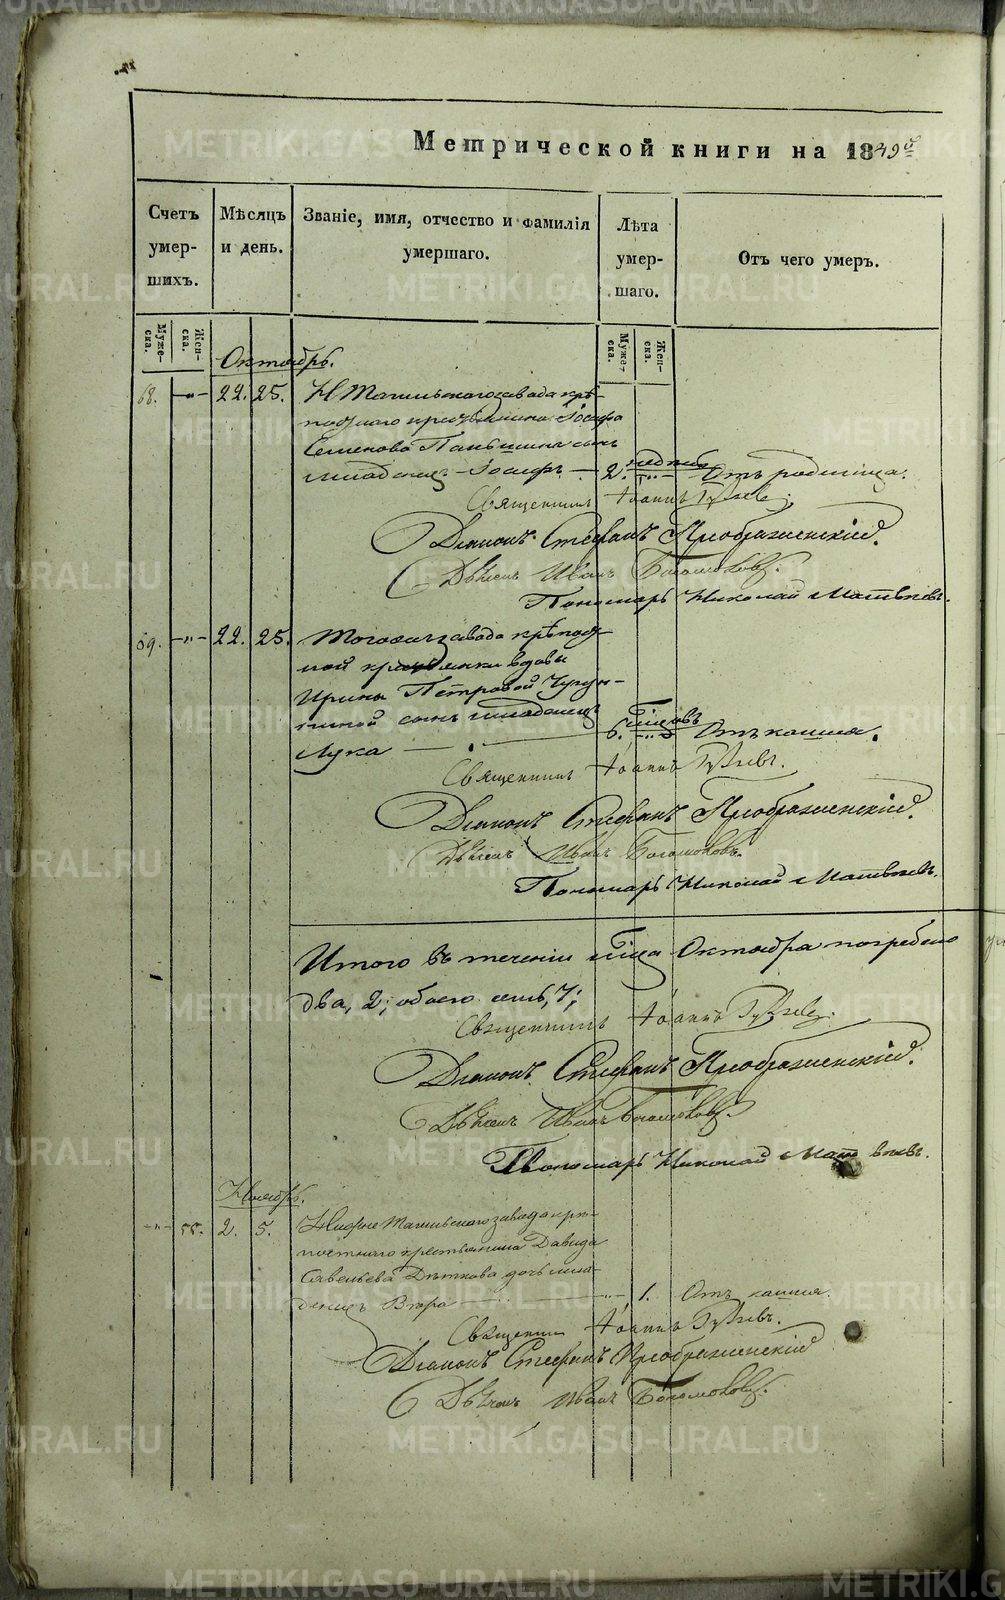 Метрической книги на 1849 й
Счетъ умер-шихъ.
Мѣсяцъ и день.
Званіе, имя, отчество и фамилія умершаго.
Лѣта умер-шаго.
Отъ чего умеръ.
Муже-ска.
Жен-ска.
Муже-ска.
Жен-ска.
Октябрь.
68. -"- 22. 25. Н Тагильскаго завода крѣ-
постнаго крестьянина Іосифа
Семенова Паньшина сынъ
младенецъ Іосифъ — 2. недѣль -"- Отъ родимца.
Священникъ Іоаннъ
Діаконъ Стефанъ Преображенскій.
Дьячекъ Иванъ Богомоловъ.
Пономарь Николай Матвѣевъ.
69. -"- 22. 25. Тогожъ завода крѣпост-
ной крестьянки вдовы
Ирины Петровой
сынъ младенецъ
Лука — 6. мѣсяцовъ -"- Отъ кашля.
Священникъ Іоаннъ
Діаконъ Стефанъ Преображенскій.
Дьячекъ Иванъ Богомоловъ.
Пономарь Николай Матвѣевъ.
Итого въ теченіи мѣсяца Октября погребено
два, 2; обоего семь, 7;
Священникъ Іоаннъ
Діаконъ Стефанъ Преображенскій.
Дьячекъ Иванъ Богомоловъ.
Пономарь Николай Матвѣевъ.
Ноябрь.
-"- 55. 2. 5. Нижне Тагильскаго завода крѣ-
постнаго крестьянина Давида
Савельева Дѣткова дочь мла-
денецъ Вѣра — -"- 1. Отъ кашля.
Священникъ Іоаннъ
Діаконъ Стефанъ Преображенскій
Дьячекъ Иванъ Богомоловъ.
METRIKI.GASO-URAL.RU